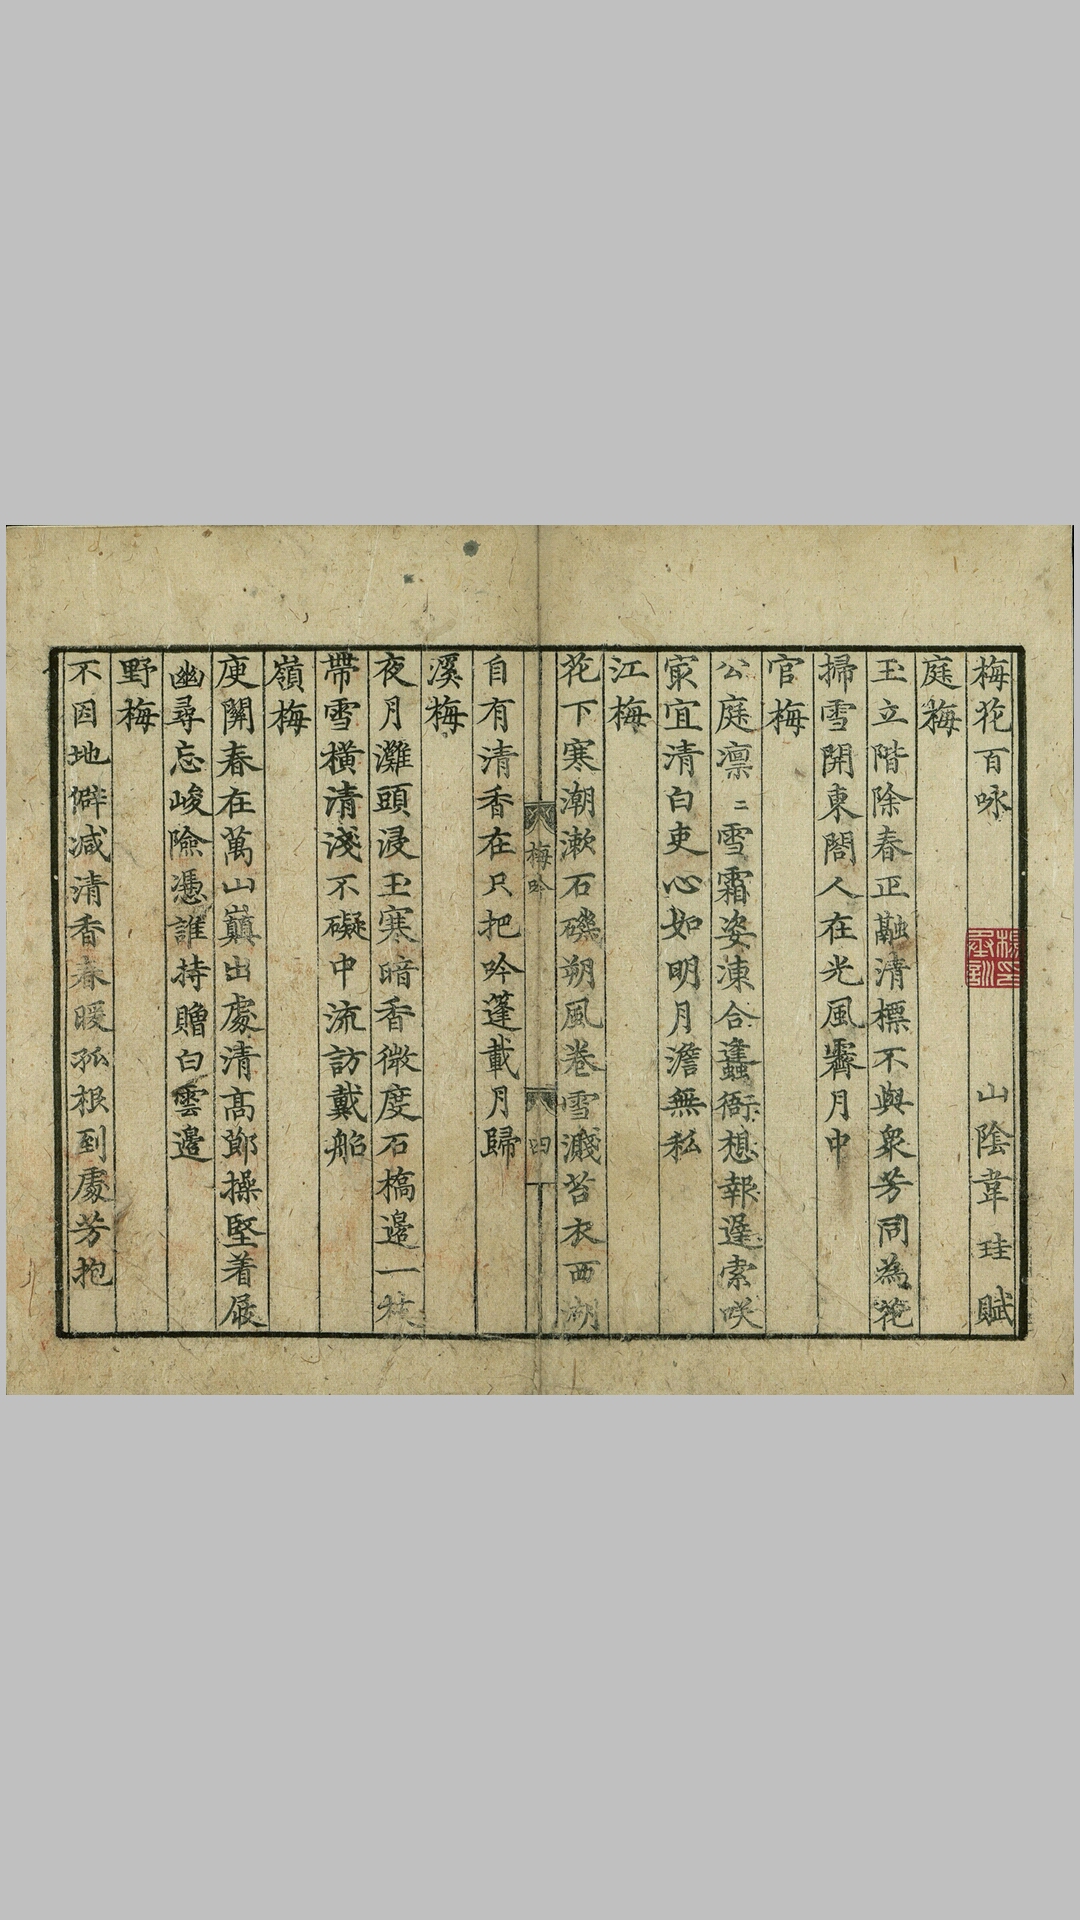 梅花百咏 山陰韋珪賦
庭梅
玉立階除春正融清標不與衆芳同為花
掃雪開東閤人在光風霽月中
官梅
公庭凛〻雪霜姿凍合蓬衙想報遲索咲
冣宜清白吏心如明月澹無私
江梅
花下寒潮漱石磯朔風卷雪濺苔衣西湖
梅吟 四
自有清香在只把吟篷載月歸
溪梅
夜月灘頭浸玉寒暗香微度石橋邊一枝
帶雪橫清淺不礙中流訪戴船
嶺梅
庾關春在萬山巔出處清髙節操堅着屐
幽尋忘峻險憑誰持贈白雲邊
野梅
不因地僻减清香春暖孤根到處芳抱